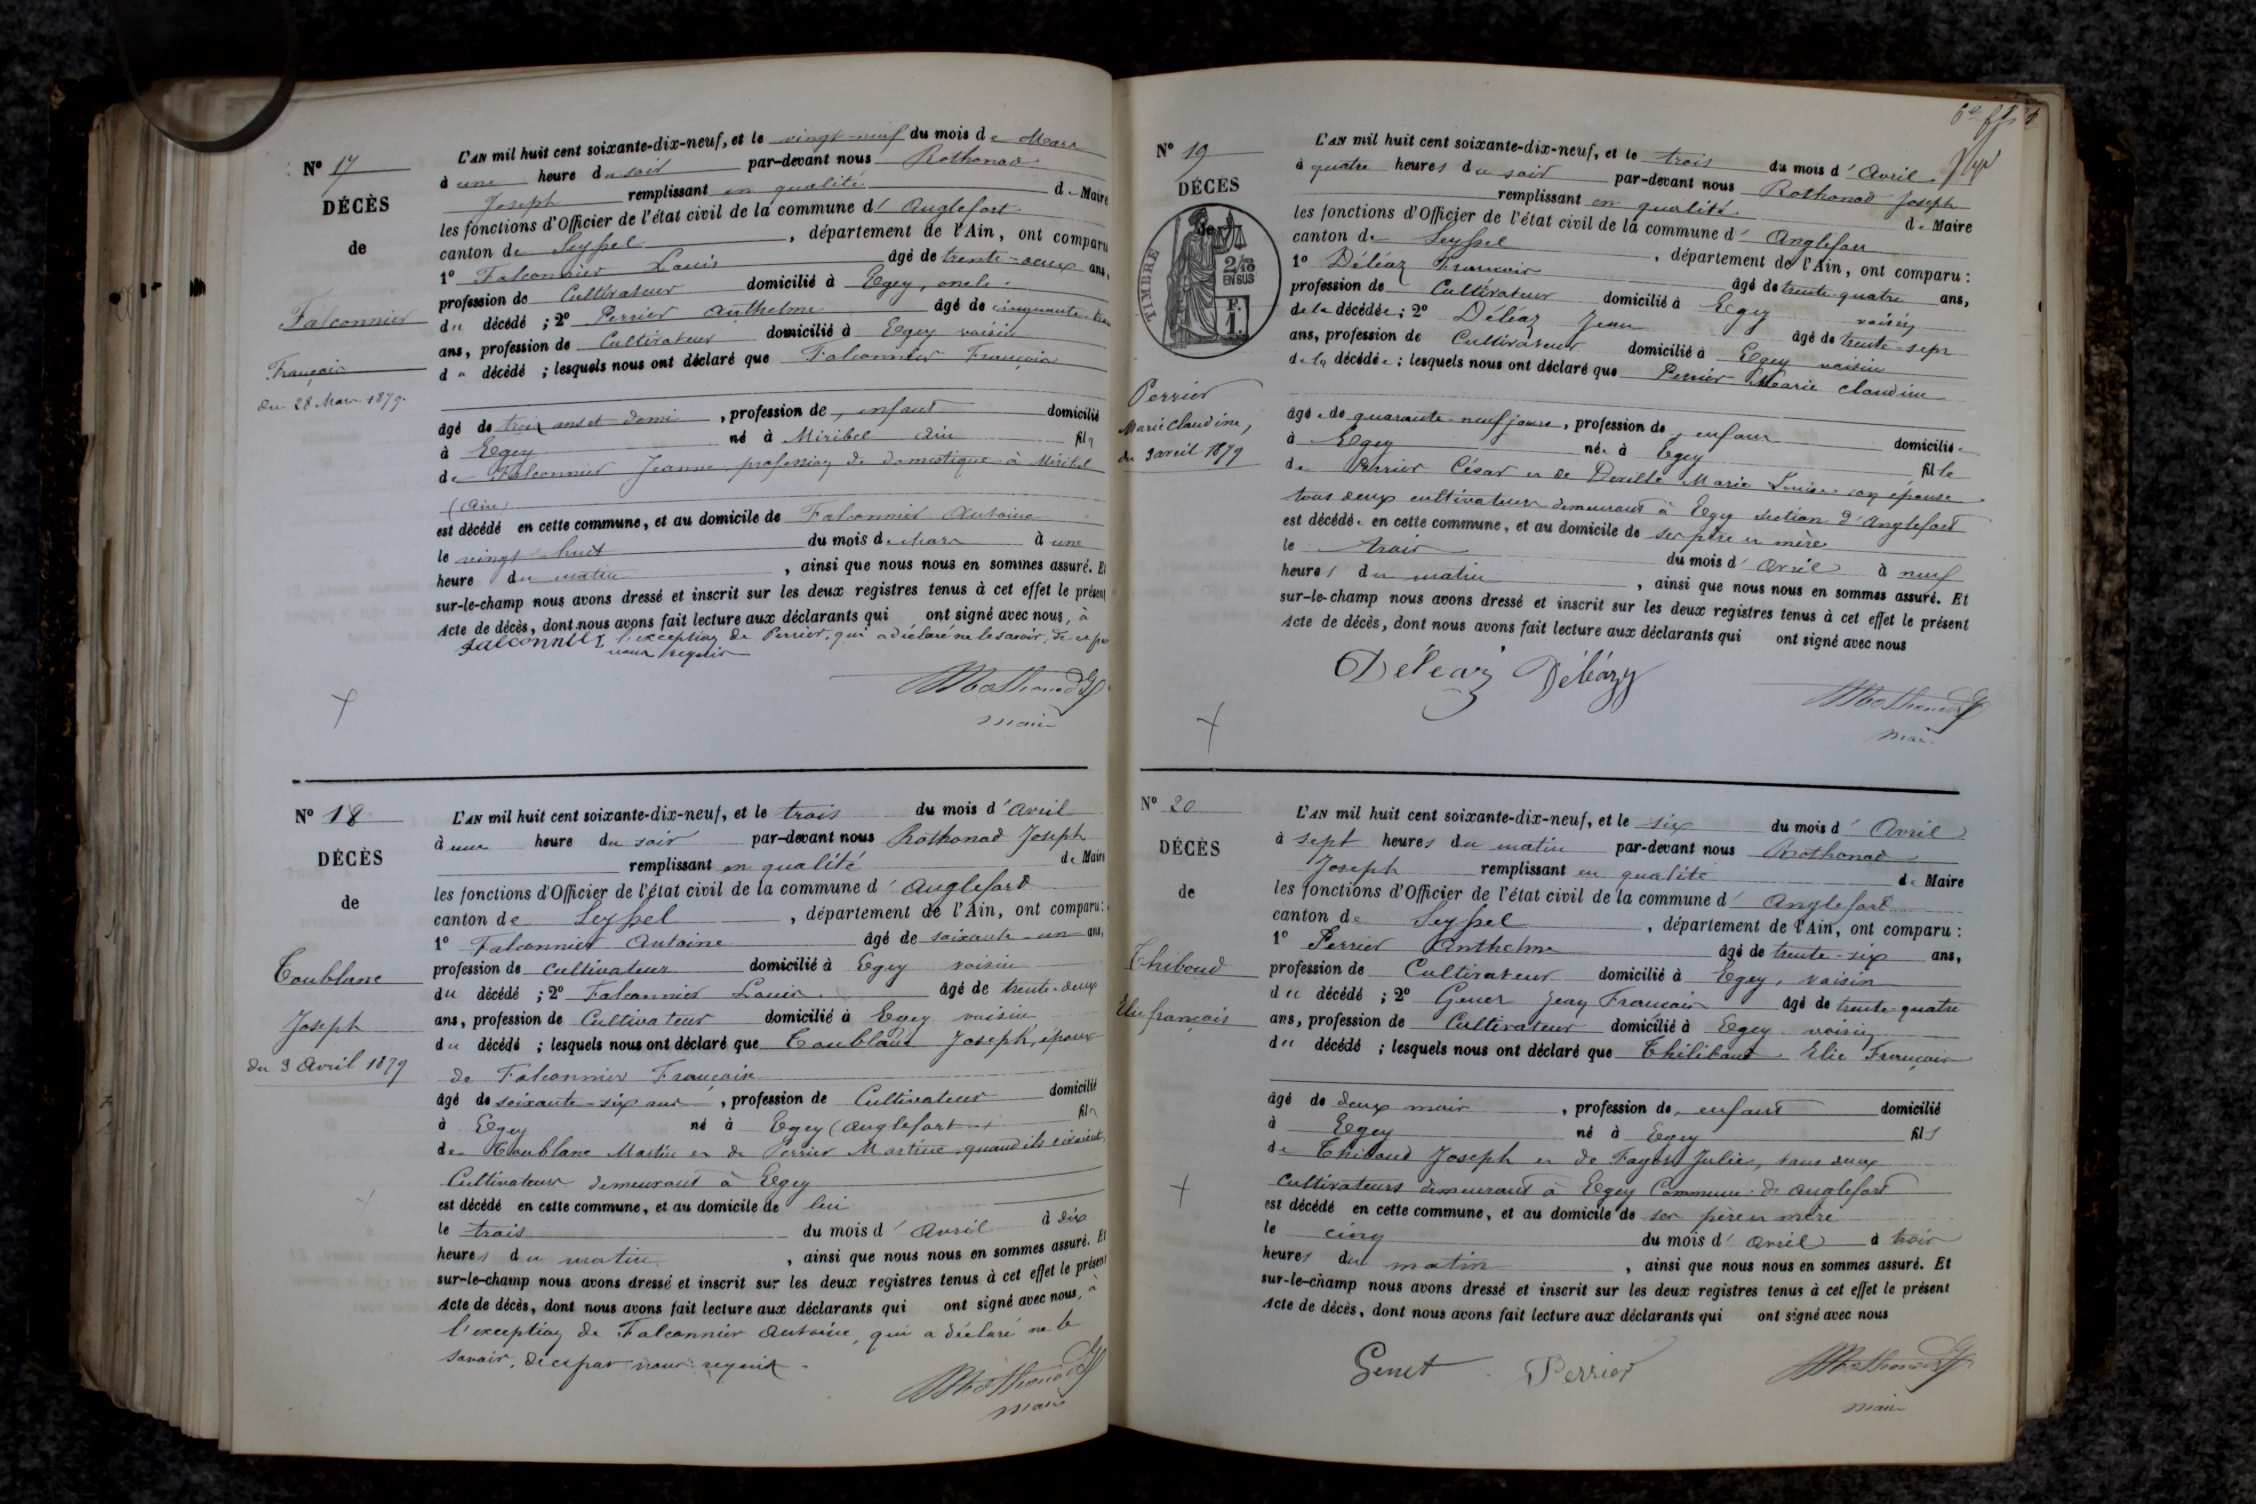 Nº 17
DÉCÈS
de
Falconnier
François
du 28 Mars 1879.
L'AN mil huit cent soixante-dix-neuf, et le vingt-neuf du mois de Mars
à une heure du soir par-devant nous Rothonod
Joseph remplissant en qualité de Maire
les fonctions d'Officier de l'état civil de la commune d' Anglefort
canton de Seyssel, département de l'Ain, ont comparu
1º Falconnier Louis âgé de trente-deux ans,
profession de Cultivateur domicilié à Egey, oncle
du décédé ; 2º Perrier Anthelme âgé de cinquante
ans, profession de Cultivateur domicilié à Egey voisin
du décédé ; lesquels nous ont déclaré que Falconnier François
âgé de trois ans et demi, profession de, enfant domicilié
à Egey né à Miribel Ain fils
de Falconnier Jeanne profession de domestique à Miribel
(Ain)
est décédé en cette commune, et au domicile de Falconnier Antoine
le vingt-huit du mois de Mars à une
heure du matin, ainsi que nous nous en sommes assuré. Et
sur-le-champ nous avons dressé et inscrit sur les deux registres tenus à cet effet le présent
Acte de décès, dont nous avons fait lecture aux déclarants qui ont signé avec nous, à
l'exception de Perrier, qui a déclaré ne le savoir, de ce par
nous requis
Falconnier
Rothonod J
maire
Nº 18
DÉCÈS
de
Toublanc
Joseph
du 3 Avril 1879
L'AN mil huit cent soixante-dix-neuf, et le trois du mois d'Avril
à une heure du soir par-devant nous Rothonod Joseph
remplissant en qualité de Maire
les fonctions d'Officier de l'état civil de la commune d'Anglefort
canton de Seyssel, département de l'Ain, ont comparu :
1º Falconnier Antoine âgé de soixante-un ans,
profession de cultivateur domicilié à Egey voisin
du décédé ; 2º Falconnier Louis âgé de trente-deux
ans, profession de Cultivateur domicilié à Egey voisin
du décédé ; lesquels nous ont déclaré que Toublanc Joseph, époux
de Falconnier Françoise
âgé de soixante-six ans, profession de Cultivateur domicilié
à Egey né à Egey (Anglefort) fils
de Toublanc Martin et de Perrier Martine quand ils vivaient,
Cultivateurs demeurant à Egey
est décédé en cette commune, et au domicile de lui
le trois du mois d'Avril à dix
heures du matin, ainsi que nous nous en sommes assuré. Et
sur-le-champ nous avons dressé et inscrit sur les deux registres tenus à cet effet le présent
Acte de décès, dont nous avons fait lecture aux déclarants qui ont signé avec nous, à
l'exception de Falconnier Antoine, qui a déclaré ne le
savoir, de ce par nous requis.
Rothonod J
maire
Nº 19
DÉCÈS
TIMBRE
2/10
EN SUS
F.
1.
Perrier
Marie Claudine,
du 3 avril 1879
L'AN mil huit cent soixante-dix-neuf, et le trois du mois d'Avril
à quatre heures du soir par-devant nous Rothonod Joseph
remplissant en qualité de Maire
les fonctions d'Officier de l'état civil de la commune d'Anglefort
canton de Seyssel, département de l'Ain, ont comparu :
1º Déléaz François âgé de trente-quatre ans,
profession de Cultivateur domicilié à Egey voisin
de la décédée ; 2º Déléaz Jean âgé de trente-sept
ans, profession de Cultivateur domicilié à Egey voisin
de la décédée ; lesquels nous ont déclaré que Perrier Marie Claudine
âgée de quarante-neuf jours, profession de, enfant domiciliée
à Egey née à Egey fille
de Perrier César et de Deville Marie Louise son épouse
tous deux cultivateurs demeurant à Egey section d'Anglefort
est décédée en cette commune, et au domicile de ses père et mère
le trois du mois d'Avril à neuf
heures du matin, ainsi que nous nous en sommes assuré. Et
sur-le-champ nous avons dressé et inscrit sur les deux registres tenus à cet effet le présent
Acte de décès, dont nous avons fait lecture aux déclarants qui ont signé avec nous
Déléaz Déléaz
Rothonod J
maire
Nº 20
DÉCÈS
de
Thiboud
Elie françois
L'AN mil huit cent soixante-dix-neuf, et le six du mois d'Avril
à sept heures du matin par-devant nous Rothonod
Joseph remplissant en qualité de Maire
les fonctions d'Officier de l'état civil de la commune d'Anglefort
canton de Seyssel, département de l'Ain, ont comparu :
1º Perrier Anthelme âgé de trente-six ans,
profession de Cultivateur domicilié à Egey, voisin
du décédé ; 2º Genet Jean François âgé de trente-quatre
ans, profession de Cultivateur domicilié à Egey voisin
du décédé ; lesquels nous ont déclaré que Elie François
âgé de deux mois, profession de, enfant domicilié
à Egey né à Egey fils
de Thiboud Joseph et de Julie, tous deux
cultivateurs demeurant à Egey Commune d'Anglefort
est décédé en cette commune, et au domicile de ses père et mère
le cinq du mois d'Avril à trois
heures du matin, ainsi que nous nous en sommes assuré. Et
sur-le-champ nous avons dressé et inscrit sur les deux registres tenus à cet effet le présent
Acte de décès, dont nous avons fait lecture aux déclarants qui ont signé avec nous
Genet Perrier
Rothonod J
maire